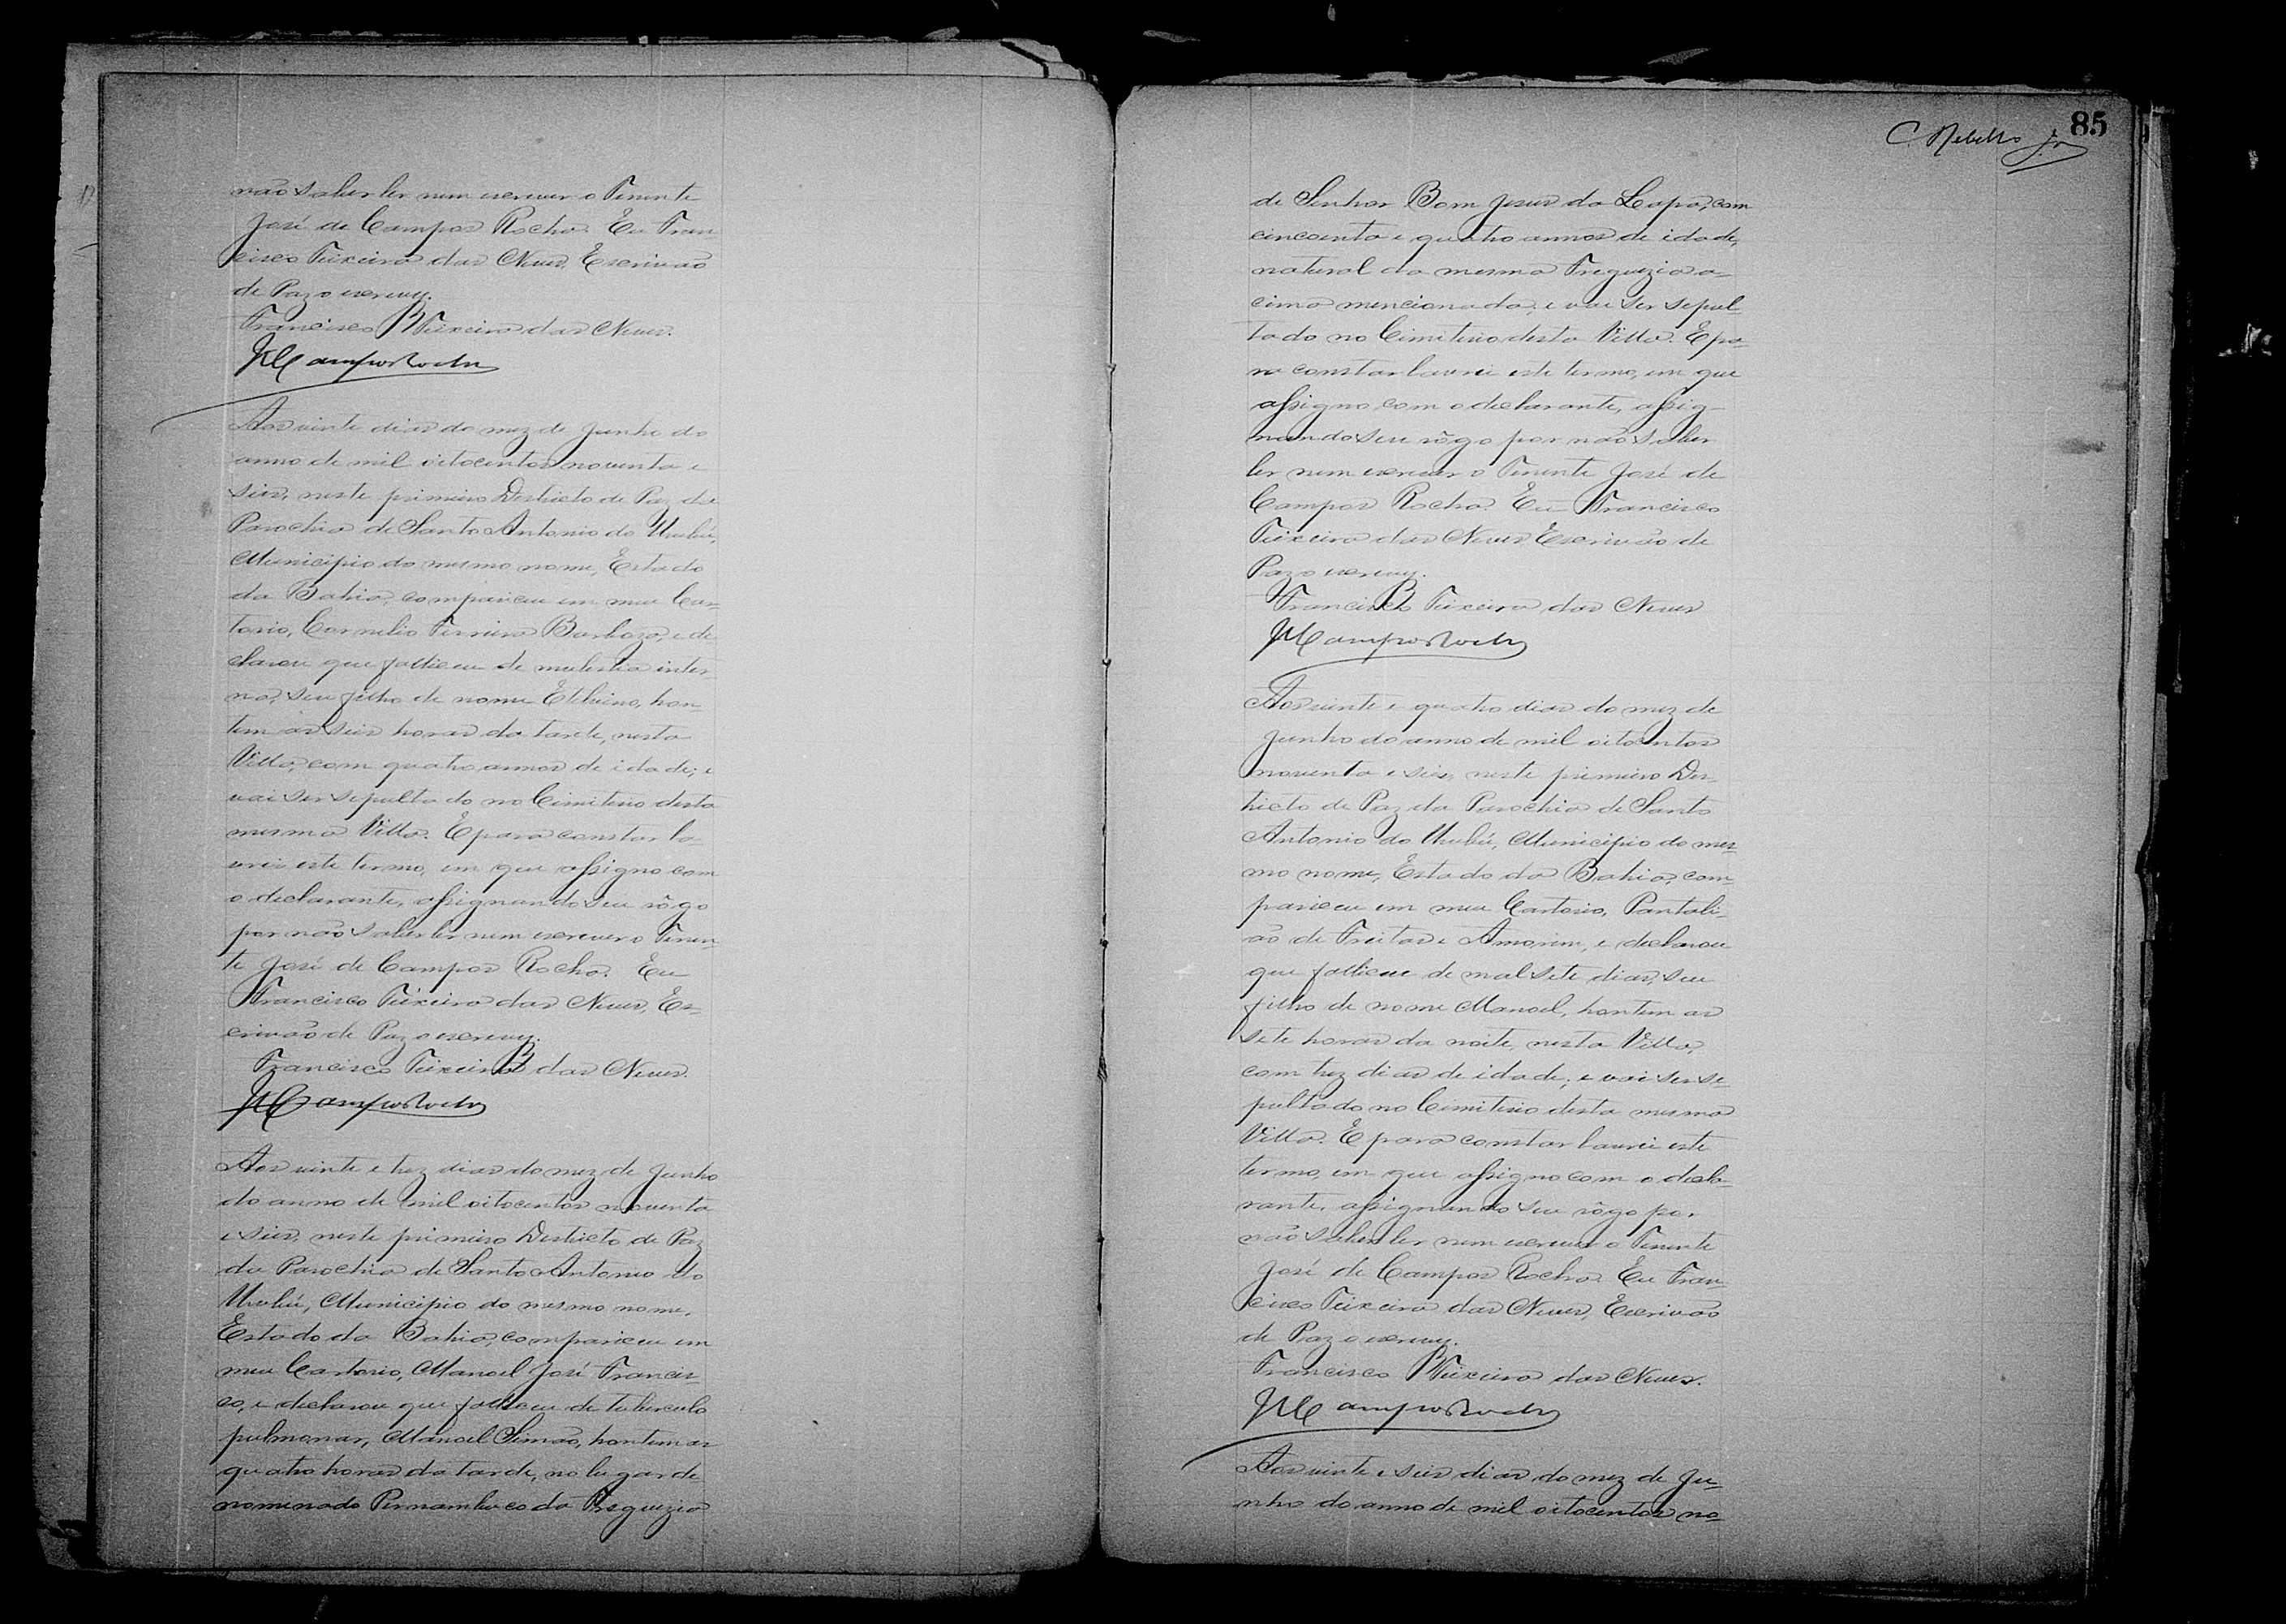 não saber ler nem escrever o Tenente
José de Campos Rocha. Eu Fran-
cisco Teixeira das Neves, Escrivão
de Paz o escrevy.
Francisco Teixeira das Neves.
JCamposRocha
Aos vinte dias do mez de Junho do
anno de mil oitocentos noventa e
seis, neste primeiro Destricto de Paz da
Parochia de Santo Antonio do Urubú,
Municipio do mesmo nome, Estado
da Bahia, compareceu em meu Car-
torio, Cornelio Ferreira Barboza, e de
clarou que falleceu de molestia inter
na, seu filho de nome Etelvino, hon-
tem as seis horas da tarde, nesta
Villa, com quatro annos de idade; e
vai ser sepultado no Cimiterio desta
mesma Villa. E para constar la-
vrei este termo, em que assigno com
o declarante, assignando seu rôgo
por não saber ler nem escrever o Tenen-
te José de Campos Rocha. Eu
Francisco Teixeira das Neves, Es-
crivão de Paz o escrevy.
Francisco Teixeira das Neves.
JCamposRocha
Aos vinte e trez dias do mez de Junho
do anno de mil oitocentos noventa
e seis, neste primeiro Destricto de Paz
da Parochia de Santo Antonio do
Urubú, Municipio do mesmo nome,
Estado da Bahia, compareceu em
meu Cartorio, Manoel José Francis-
co, e declarou que falleceu de tuberculo
pulmonar, Manoel Simão, hontem as
quatro horas da tarde, no lugar de
nominado Pernambuco da Freguezia
85
C. Rebello Jr
de Senhor Bom Jesus da Lapa, com
cincoenta e quatro annos de idade,
natural da mesma Freguezia a-
cima mencionada; e vai ser sepul
tado no Cimiterio desta Villa. E pa-
ra constar lavrei este termo, em que
assigno com o declarante, assig-
nando seu rôgo por não saber
ler nem escrever o Tenente José de
Campos Rocha. Eu Francisco
Teixeira das Neves, Escrivão de
Paz o escrevy.
Francisco Teixeira das Neves
JCamposRocha
Aos vinte e quatro dias do mez de
Junho do anno de mil oitocentos
noventa e seis, neste primeiro Des-
tricto de Paz da Parochia de Santo
Antonio do Urubú, Municipio do mes-
mo nome, Estado da Bahia, com-
pareceu em meu Cartorio, Pantali-
ão de Freitas e Amorim, e declarou
que falleceu de mal sete dias, seu
filho de nome Manoel, hontem as
sete horas da noite, nesta Villa,
com trez dias de idade; e vai ser se-
pultado no Cimiterio desta mesma
Villa. E para constar lavrei este
termo, em que assigno com o decla-
rante, assignando seu rôgo por
não saber ler nem escrever o Tenente
José de Campos Rocha. Eu Fran-
cisco Teixeira das Neves, Escrivão
de Paz o escrevy.
Francisco Teixeira das Neves.
JCamposRocha
Aos vinte e seis dias do mez de Ju-
nho do anno de mil oitocentos no-